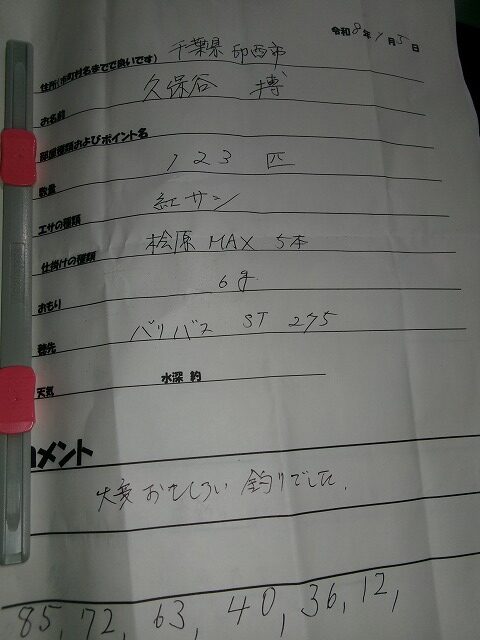 令和8年1月5日
住所(市町村名までで良いです) 千葉県 印西市
お名前 久保谷 博
部屋種類およびポイント名
数量 123 匹
エサの種類 紅サン
仕掛けの種類 桧原 MAX 5本
おもり 6g
穂先 バリバス ST 275
天気 水深 約
コメント
大変 おもしろい 釣りでした.
85, 72, 63, 40, 36, 12,